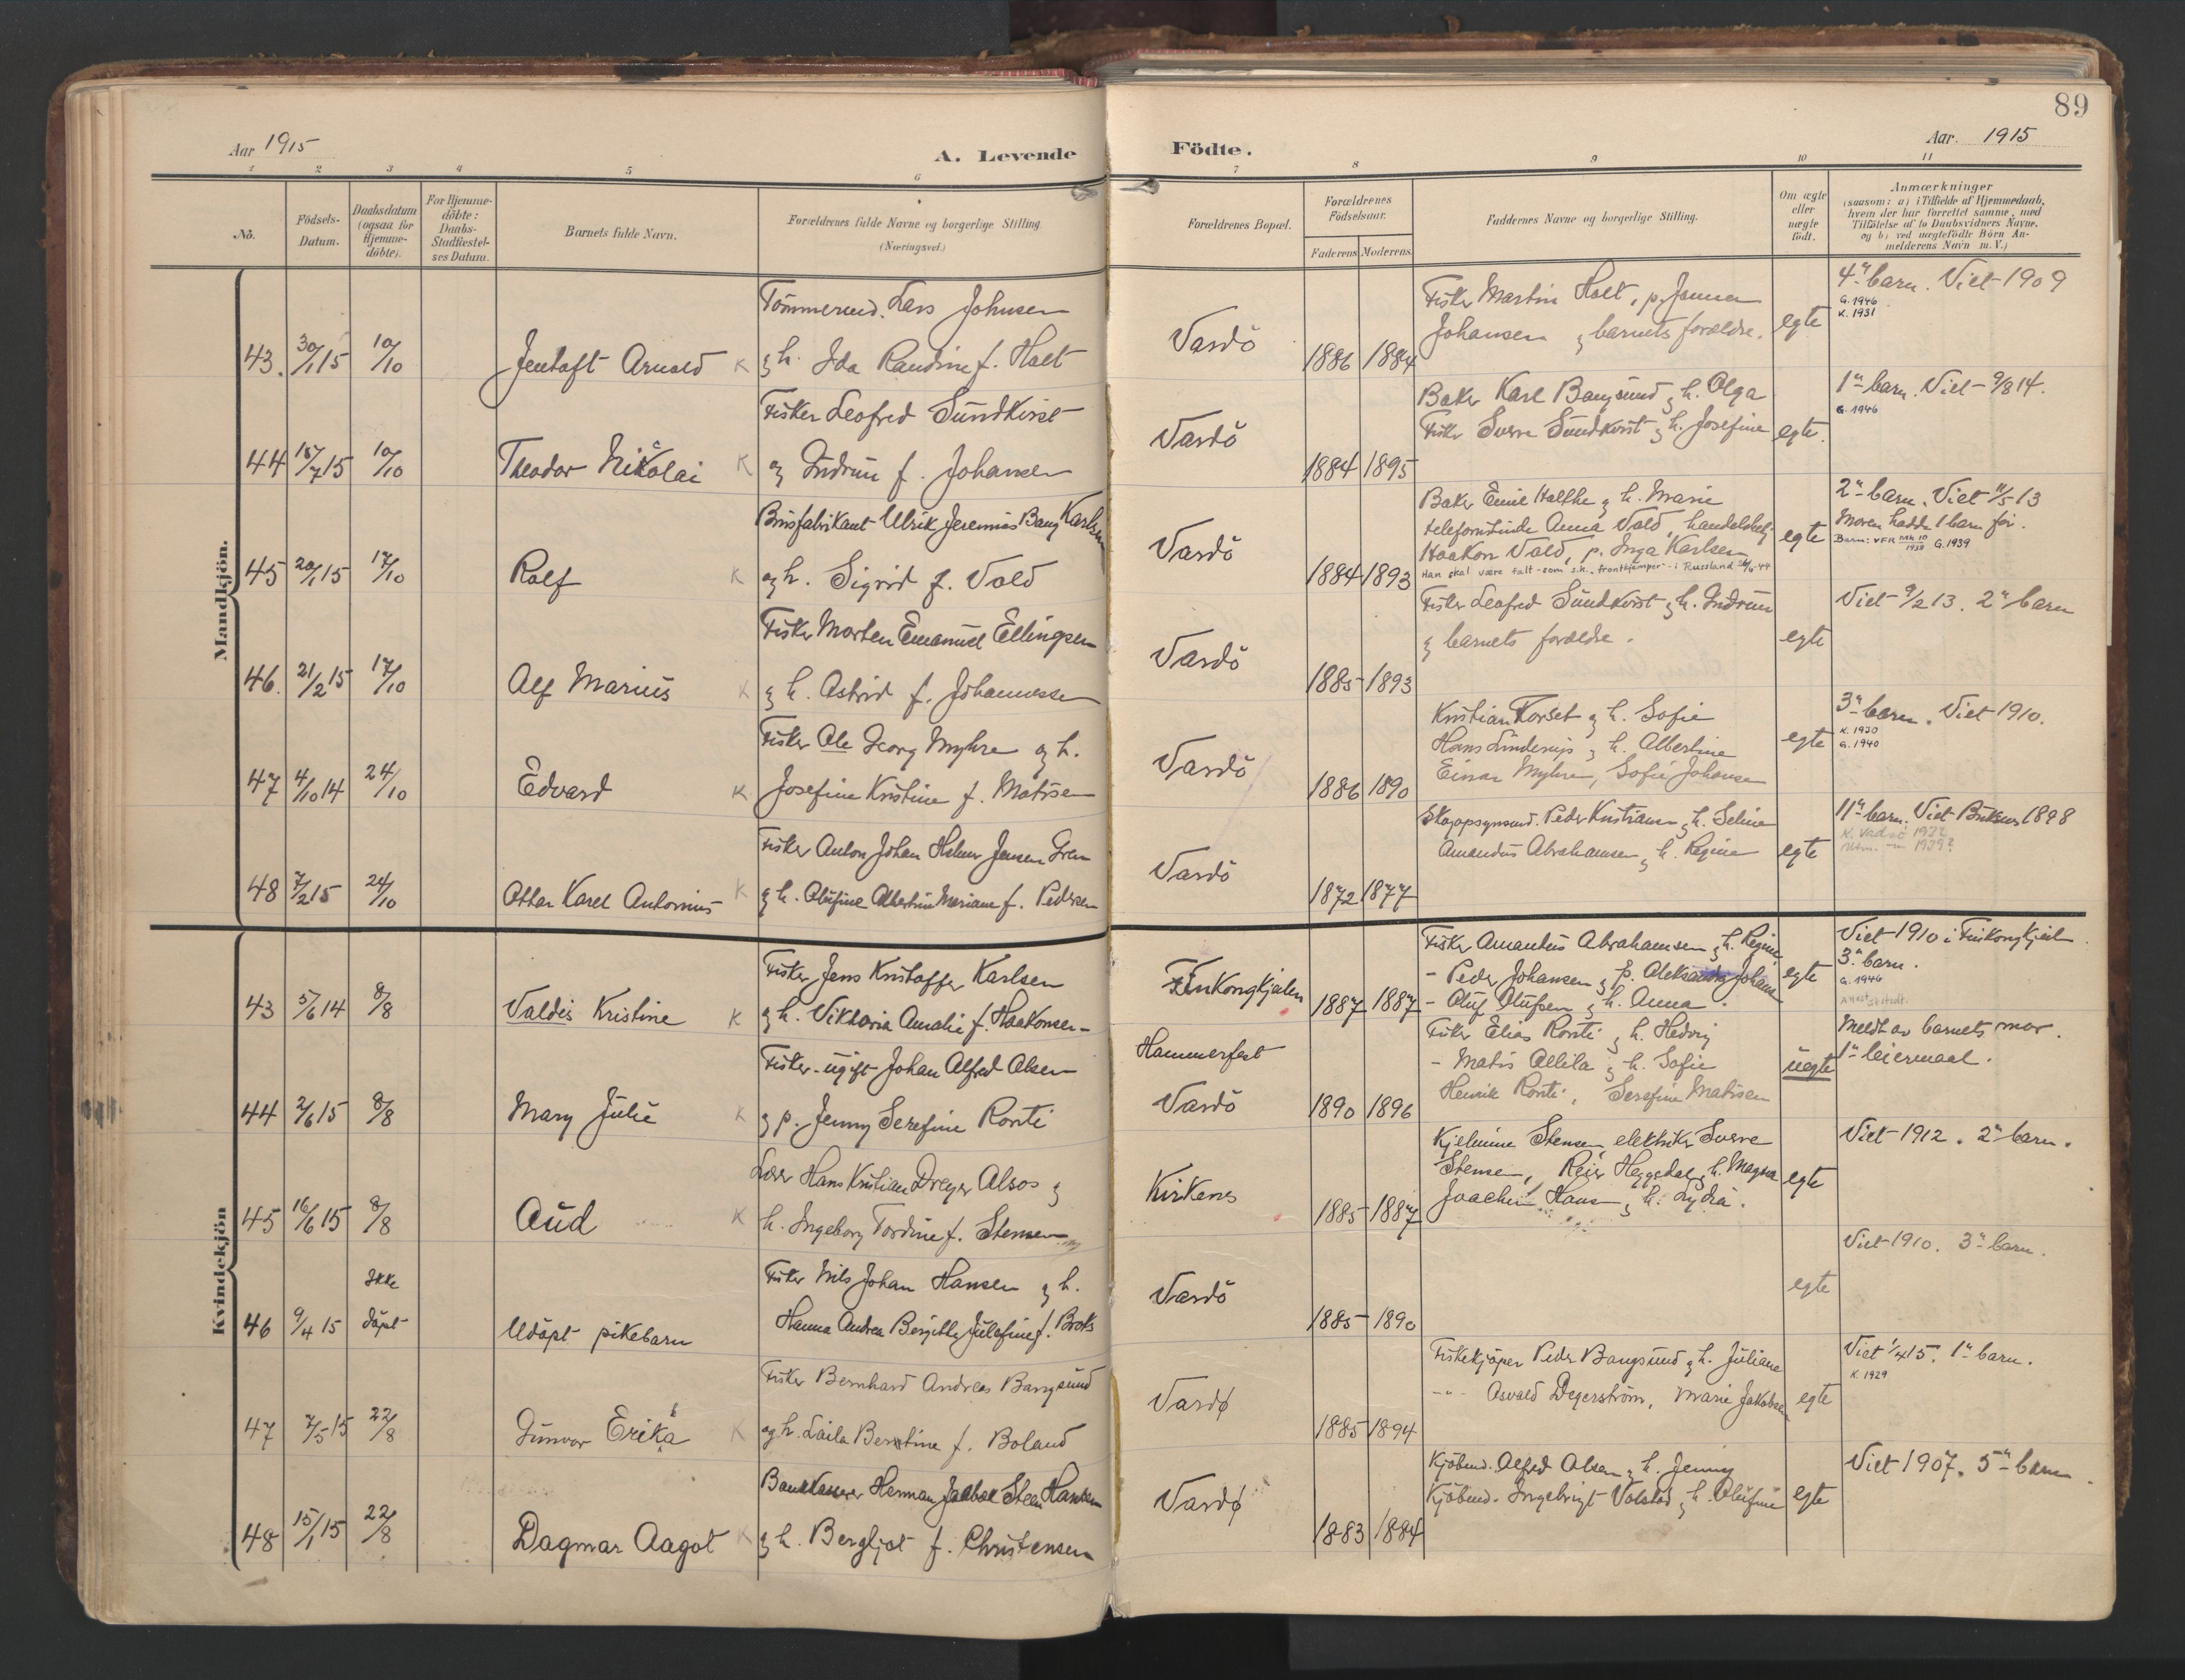 89
Aar 1915
A. Levende Födte.
Aar. 1915
1 2 3 4 5 6 7 8 9 10 11
No.
Födsels-Datum.
Daabsdatum (ogsaa for Hjemme-döbte).
For Hjemme-döbte: Daabs-Stadfæstel-ses Datum.
Barnets fulde Navn.
Forældrenes fulde Navne og borgerlige Stilling (Næringsvei.)
Forældrenes Bopæl.
Forældrenes Födselsaar.
Faderens Moderens
Faddernes Navne og borgerlige Stilling.
Om ægte eller uægte födt.
Anmærkninger
(saasom: a) i Tilfælde af Hjemmedaab,
hvem der har forrettet samme, med
Tilföielse af to Daabsvidners Navne,
og b) ved uægtefödte Börn An-
melderens Navn m. V.)
Mandkjön.
Tömmermd. Lars Johnsen
43. 30/1 15 10/10 Jentoft Arnold K g h. Ida Randine f. Holt
Vardö 1886 1884
Fisker Martin Holt, p. Jenna
Johansen g barnets forældre.
egte
4de barn. Viet 1909
G. 1946
K. 1931
Fisker Leofred Sundkvist
44 15/7 15 10/10 Theodor Nikolai K og Gudrun f. Johansen
Vardö 1884 1895
Baker Karl Bangsund g h. Olga
Fisker Sverre Sundkvist g h. Josefine
egte.
1ste barn. Viet 9/8 14.
G. 1946
Brusfabrikant Ulrik Jeremias Bang Karlsen
45 20/1 15 17/10 Rolf K og h. Sigrid f. Vold
Vardö 1884 1893
Baker Emil Halfhe g h. Marie
telefonistinde Anna Vold, handelsbetj.
Haakon Vold, p. Inga Karlsen
Han skal være falt som s.k. "frontkjemper" i Russland 26/6-44
egte
2de barn. Viet 11/5 13
Moren hadde 1 barn för.
G. 1939
Fisker Morten Emanuel Ellingsen
46. 21/2 15 17/10 Alf Marius K g h. Astrid f. Johannessen
Vardö 1885 1893
Fisker Leofred Sundkvist g h. Gudrun
g barnets forældre.
egte
Viet 9/2 13. 2de barn
Fisker Ole Georg Myhre og h.
47 4/10 14 24/10 Edvard K Josefine Kristine f. Matisen
Vardö 1886 1890
Kristian Korset g h. Sofie
Hans Lindrup g h. Albertine
Einar Myhre, Sofie Johansen
egte
3de barn. Viet 1910.
K. 1930
G. 1940
Fisker Anton Johan Helmer Jensen Gren
48 7/2 15 24/10 Ottar Karel Antonius K g h. Olufine Albertine Mariane f. Pedersen
Vardö 1872 1877
Skogopsynsmd. Peder Kristiansen g h. Seline
Amandus Abrahamsen g h. Regine
egte
11te barn. Viet 1898
K. Vadsö 1932
Kvindekjön
Fisker Jens Kristoffer Karlsen
43 5/6 14 8/8 Valdis Kristine K g h. Viktoria Amalie f. Haakonsen
Finkongkjeilen 1887 1887
Fisker Amandus Abrahamsen g h. Regine
- Peder Johansen g p. Aleksandra Johans.
- Oluf Olufsen g h. Anna.
egte
Viet 1910 i Finkongkjeilen
3de barn.
G. 1946
Fisker ugift Johan Alfred Olsen
44 2/6 15 8/8 Mary Julie K g p. Jenny Serefine Ronti
Hammerfest
Vardö 1890 1896
Fisker Elias Ronti g h. Hedvig
- Matis Allila g h. Sofie
Henrik Ronti, Serefine Matisen
uegte
Meldt av barnets mor.
1ste leiermaal.
Lærer Hans Kristian Dreyer Alsos g
45 16/6 15 8/8 Aud K h. Ingeborg Tordine f. Stensen
Kirkenes 1885 1887
Kjelmine Stensen, elektriker Sverre
Stensen, Reier Heggedal g h. Magna
Joachim Hans g h. Lydia.
egte
Viet 1912. 2de barn.
Fisker Nils Johan Hansen g h.
46 9/4 15 Ikke döpt Udöpt pikebarn Hanna Andrea Bergitte Julefine f. Broks
Vardö 1885 1890
egte
Viet 1910. 3de barn.
Fisker Bernhard Andreas Bangsund
47 7/5 15 22/8 Gunvor Erika K og h. Laila Berntine f. Boland
Vardø 1885 1894
Fiskekjöper Peder Bangsund g h. Juliane
-"- Osvald Degerström, Marie Jakobsen
egte
Viet 1/4 15. 1ste barn.
K 1929
Bankkasserer Herman Jakbæk Steen Hansen
48 15/1 15 22/8 Dagmar Aagot K g h. Bergljot f. Christensen
Vardø 1883 1884
Kjöbmd. Alfred Olsen g h. Jenny
Kjöbmd. Ingebrigt Volstad g h. Olufine
egte
Viet 1907. 5te barn.